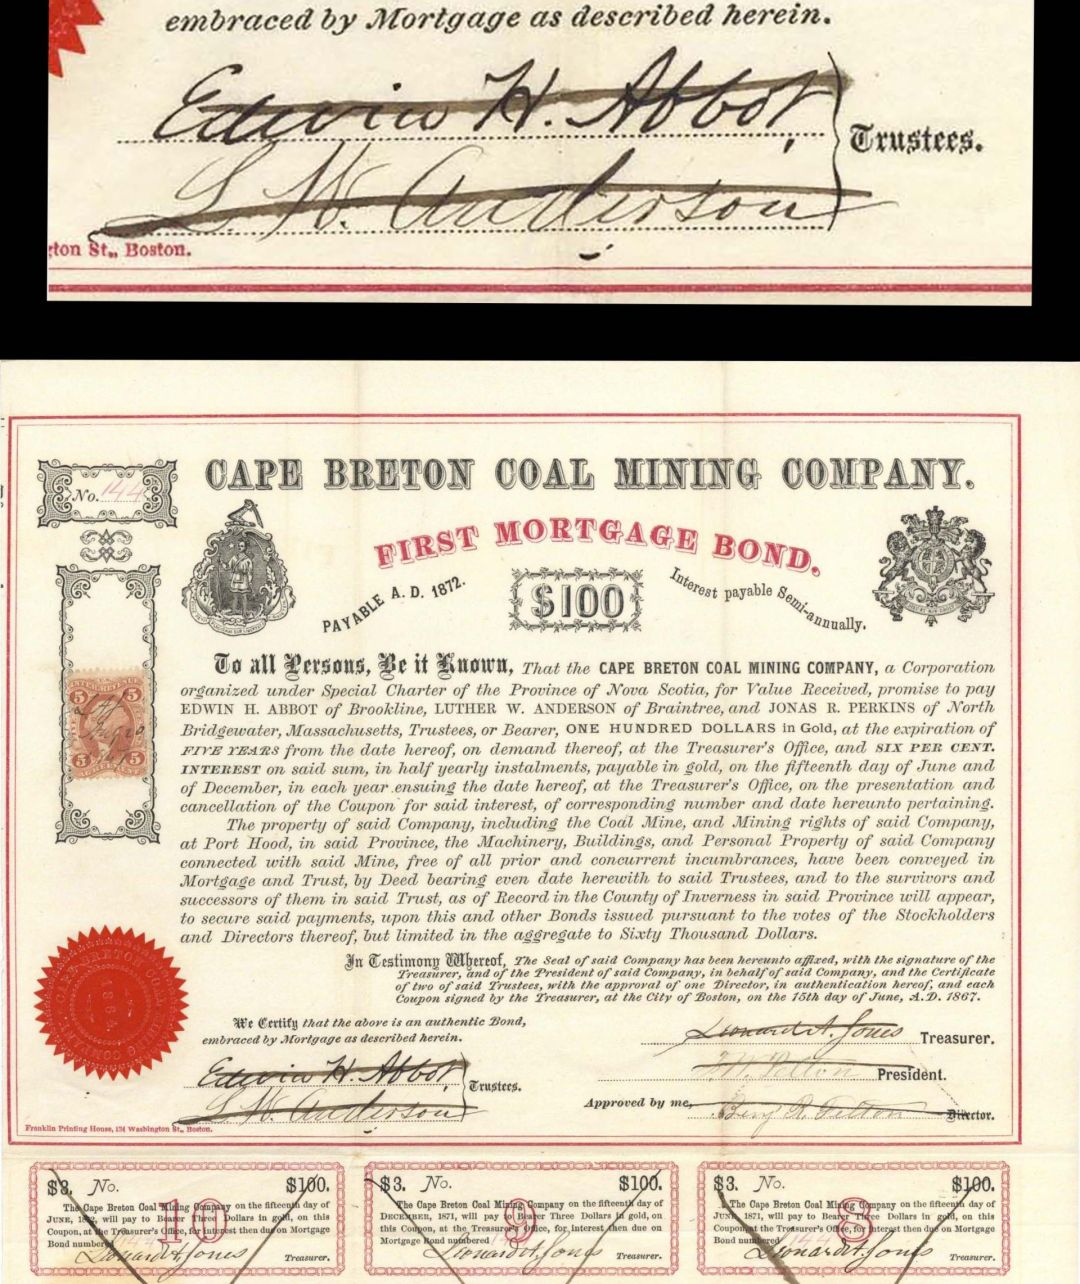 embraced by Mortgage as described herein.
Edwin H. Abbot,
L. W. Anderson
Trustees.
gton St., Boston.
No. 144
CAPE BRETON COAL MINING COMPANY.
FIRST MORTGAGE BOND.
PAYABLE A. D. 1872.
$100
Interest payable Semi-annually.
To all Persons, Be it Known, That the CAPE BRETON COAL MINING COMPANY, a Corporation
organized under Special Charter of the Province of Nova Scotia, for Value Received, promise to pay
EDWIN H. ABBOT of Brookline, LUTHER W. ANDERSON of Braintree, and JONAS R. PERKINS of North
Bridgewater, Massachusetts, Trustees, or Bearer, ONE HUNDRED DOLLARS in Gold, at the expiration of
FIVE YEARS from the date hereof, on demand thereof, at the Treasurer's Office, and SIX PER CENT.
INTEREST on said sum, in half yearly instalments, payable in gold, on the fifteenth day of June and
of December, in each year ensuing the date hereof, at the Treasurer's Office, on the presentation and
cancellation of the Coupon for said interest, of corresponding number and date hereunto pertaining.
The property of said Company, including the Coal Mine, and Mining rights of said Company,
at Port Hood, in said Province, the Machinery, Buildings, and Personal Property of said Company
connected with said Mine, free of all prior and concurrent incumbrances, have been conveyed in
Mortgage and Trust, by Deed bearing even date herewith to said Trustees, and to the survivors and
successors of them in said Trust, as of Record in the County of Inverness in said Province will appear,
to secure said payments, upon this and other Bonds issued pursuant to the votes of the Stockholders
and Directors thereof, but limited in the aggregate to Sixty Thousand Dollars.
In Testimony Whereof, The Seal of said Company has been hereunto affixed, with the signature of the
Treasurer, and of the President of said Company, in behalf of said Company, and the Certificate
of two of said Trustees, with the approval of one Director, in authentication hereof, and each
Coupon signed by the Treasurer, at the City of Boston, on the 15th day of June, A. D. 1867.
We Certify that the above is an authentic Bond,
embraced by Mortgage as described herein.
Edwin H. Abbot,
L. W. Anderson
Trustees.
Leonard A. Jones Treasurer.
President.
Approved by me, Director.
Franklin Printing House, 134 Washington St., Boston.
$3. No. 10 $100.
The Cape Breton Coal Mining Company on the fifteenth day of
JUNE, 1872, will pay to Bearer Three Dollars in gold, on this
Coupon, at the Treasurer's Office, for interest then due on Mortgage
Bond numbered
Leonard A. Jones Treasurer.
$3. No. 9 $100.
The Cape Breton Coal Mining Company on the fifteenth day of
DECEMBER, 1871, will pay to Bearer Three Dollars in gold, on
this Coupon, at the Treasurer's Office, for interest then due on
Mortgage Bond numbered
Leonard A. Jones Treasurer.
$3. No. 8 $100.
The Cape Breton Coal Mining Company on the fifteenth day of
JUNE, 1871, will pay to Bearer Three Dollars in gold, on this
Coupon, at the Treasurer's Office, for interest then due on Mortgage
Bond numbered 144
Leonard A. Jones Treasurer.